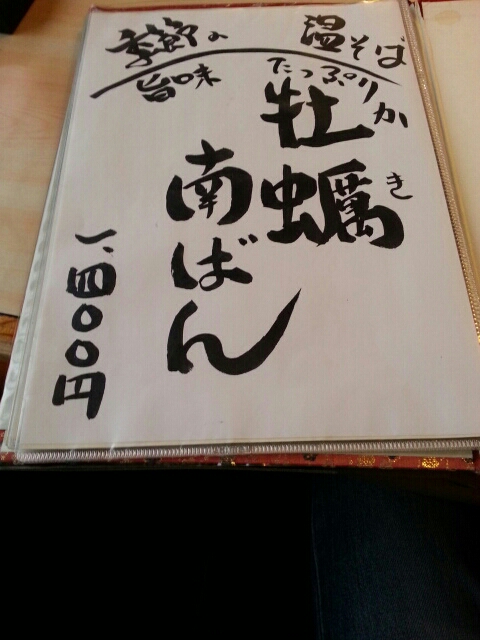 温そば
季節の
旨味
たっぷり
牡蠣
かき
南ばん
一、四〇〇円